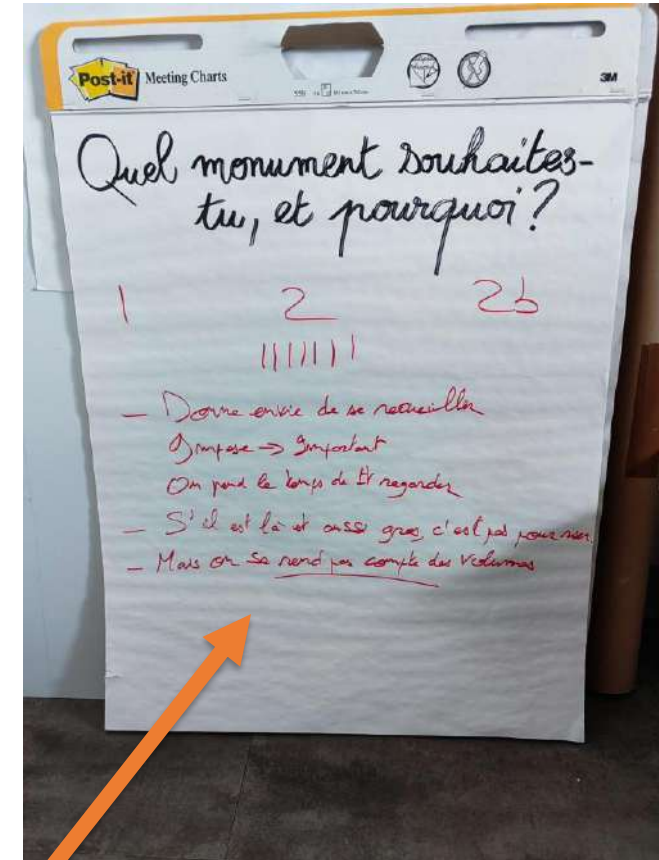 Post-it Meeting Charts
3M
Quel monument souhaites-
tu, et pourquoi?
1 2 2b
|||||||
– Donne envie de se recueillir
Impose → Important
On prend le temps de regarder
– S'il est là et aussi gros, c'est pas pour rien.
– Mais on se rend pas compte des volumes